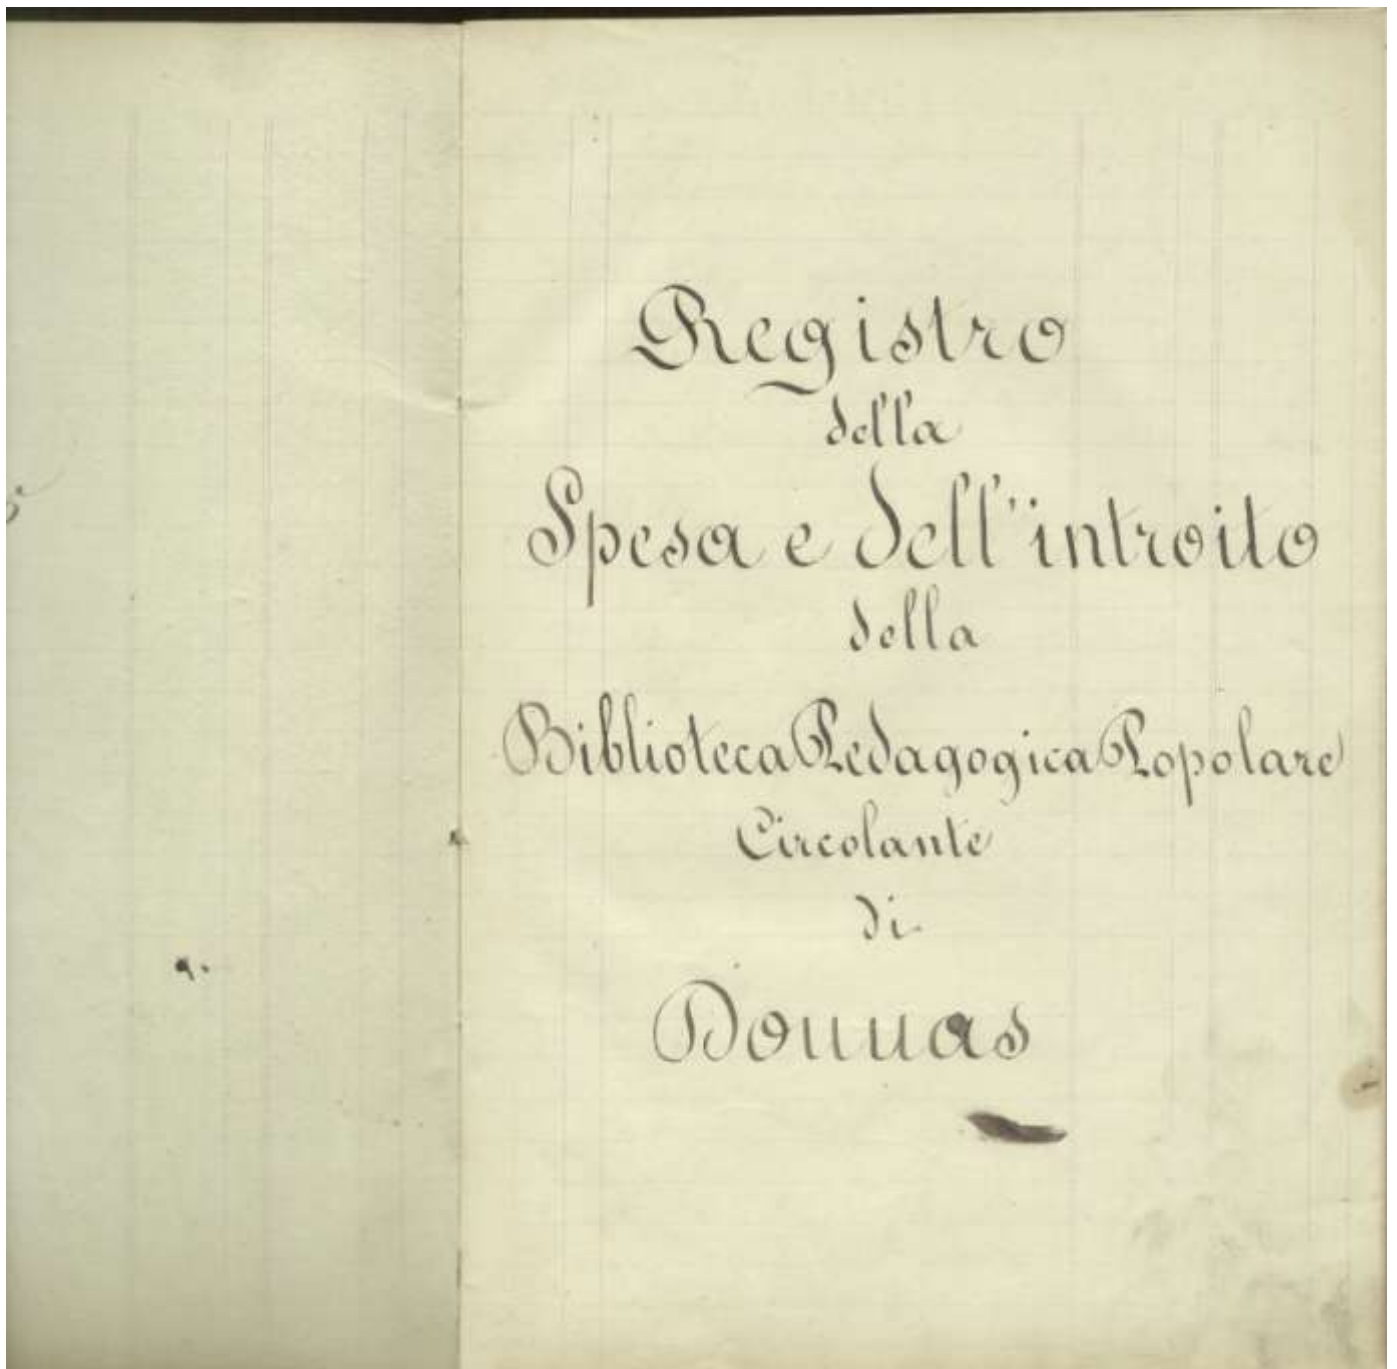 Registro
della
Spesa e dell'introito
della
Biblioteca Pedagogica Popolare
Circolante
di
Donnas